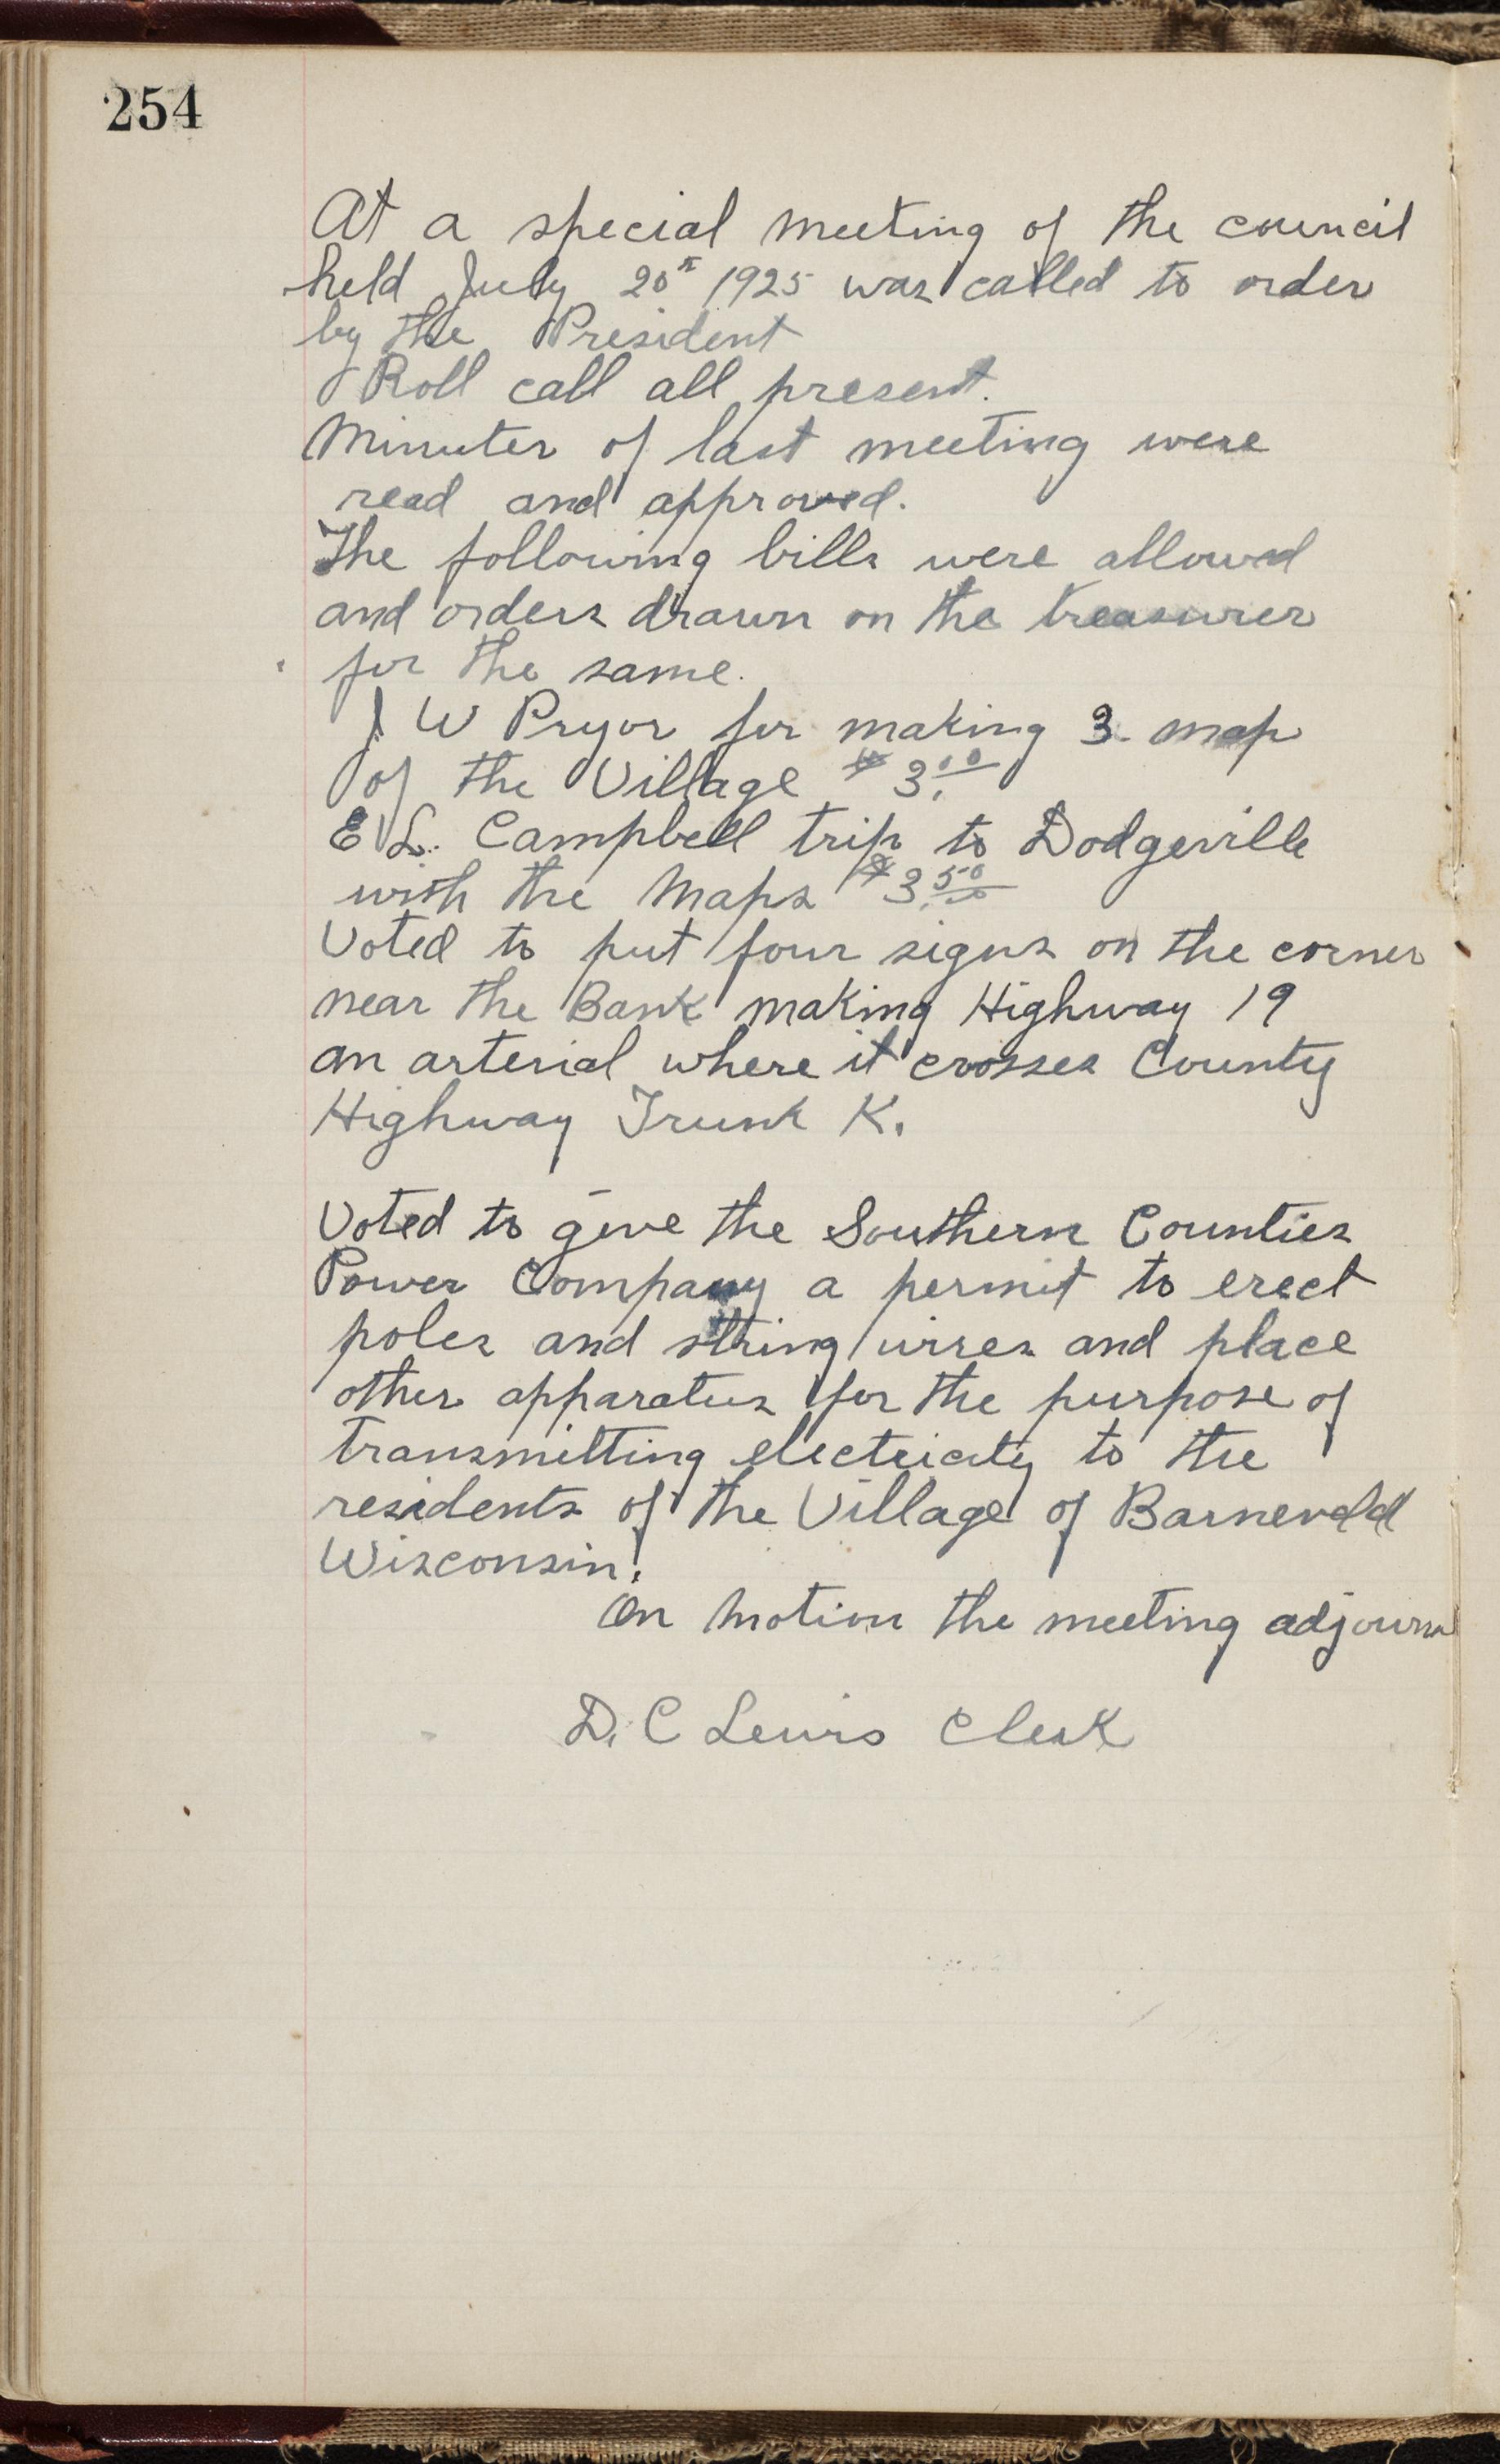 254
At a special meeting of the council
held July 20th 1925 was called to order
by the President
Roll call all present.
Minutes of last meeting were
read and approved.
The following bills were allowed
and orders drawn on the treasurer
for the same.
J W Pryor for making 3 map
of the Village $3.00
E L. Campbell trip to Dodgeville
with the Maps $3.50
Voted to put four signs on the corner
near the Bank making Highway 19
an arterial where it crosses County
Highway Trunk K.
Voted to give the Southern Counties
Power Company a permit to erect
poles and string wires and place
other apparatus for the purpose of
transmitting electricity to the
residents of the Village of Barneveld
Wisconsin.
On motion the meeting adjourned
D. C Lewis Clerk